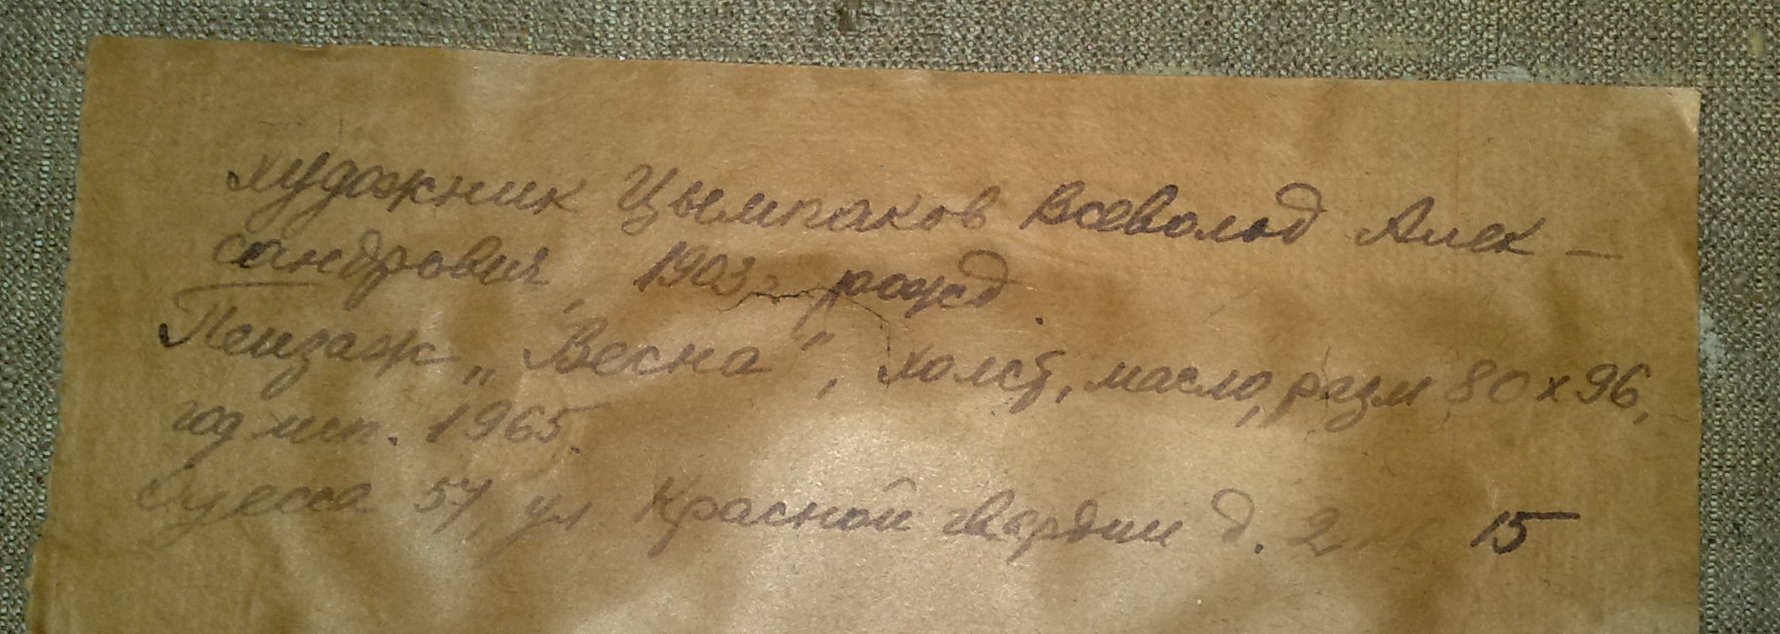 художник Цымпаков Всеволод Алек –
сандрович, 1903 г. рожд.
Пейзаж „Весна", холст, масло, разм 80 х 96,
год исп. 1965.
Одесса 57, ул Красной гвардии д. 2 кв 15